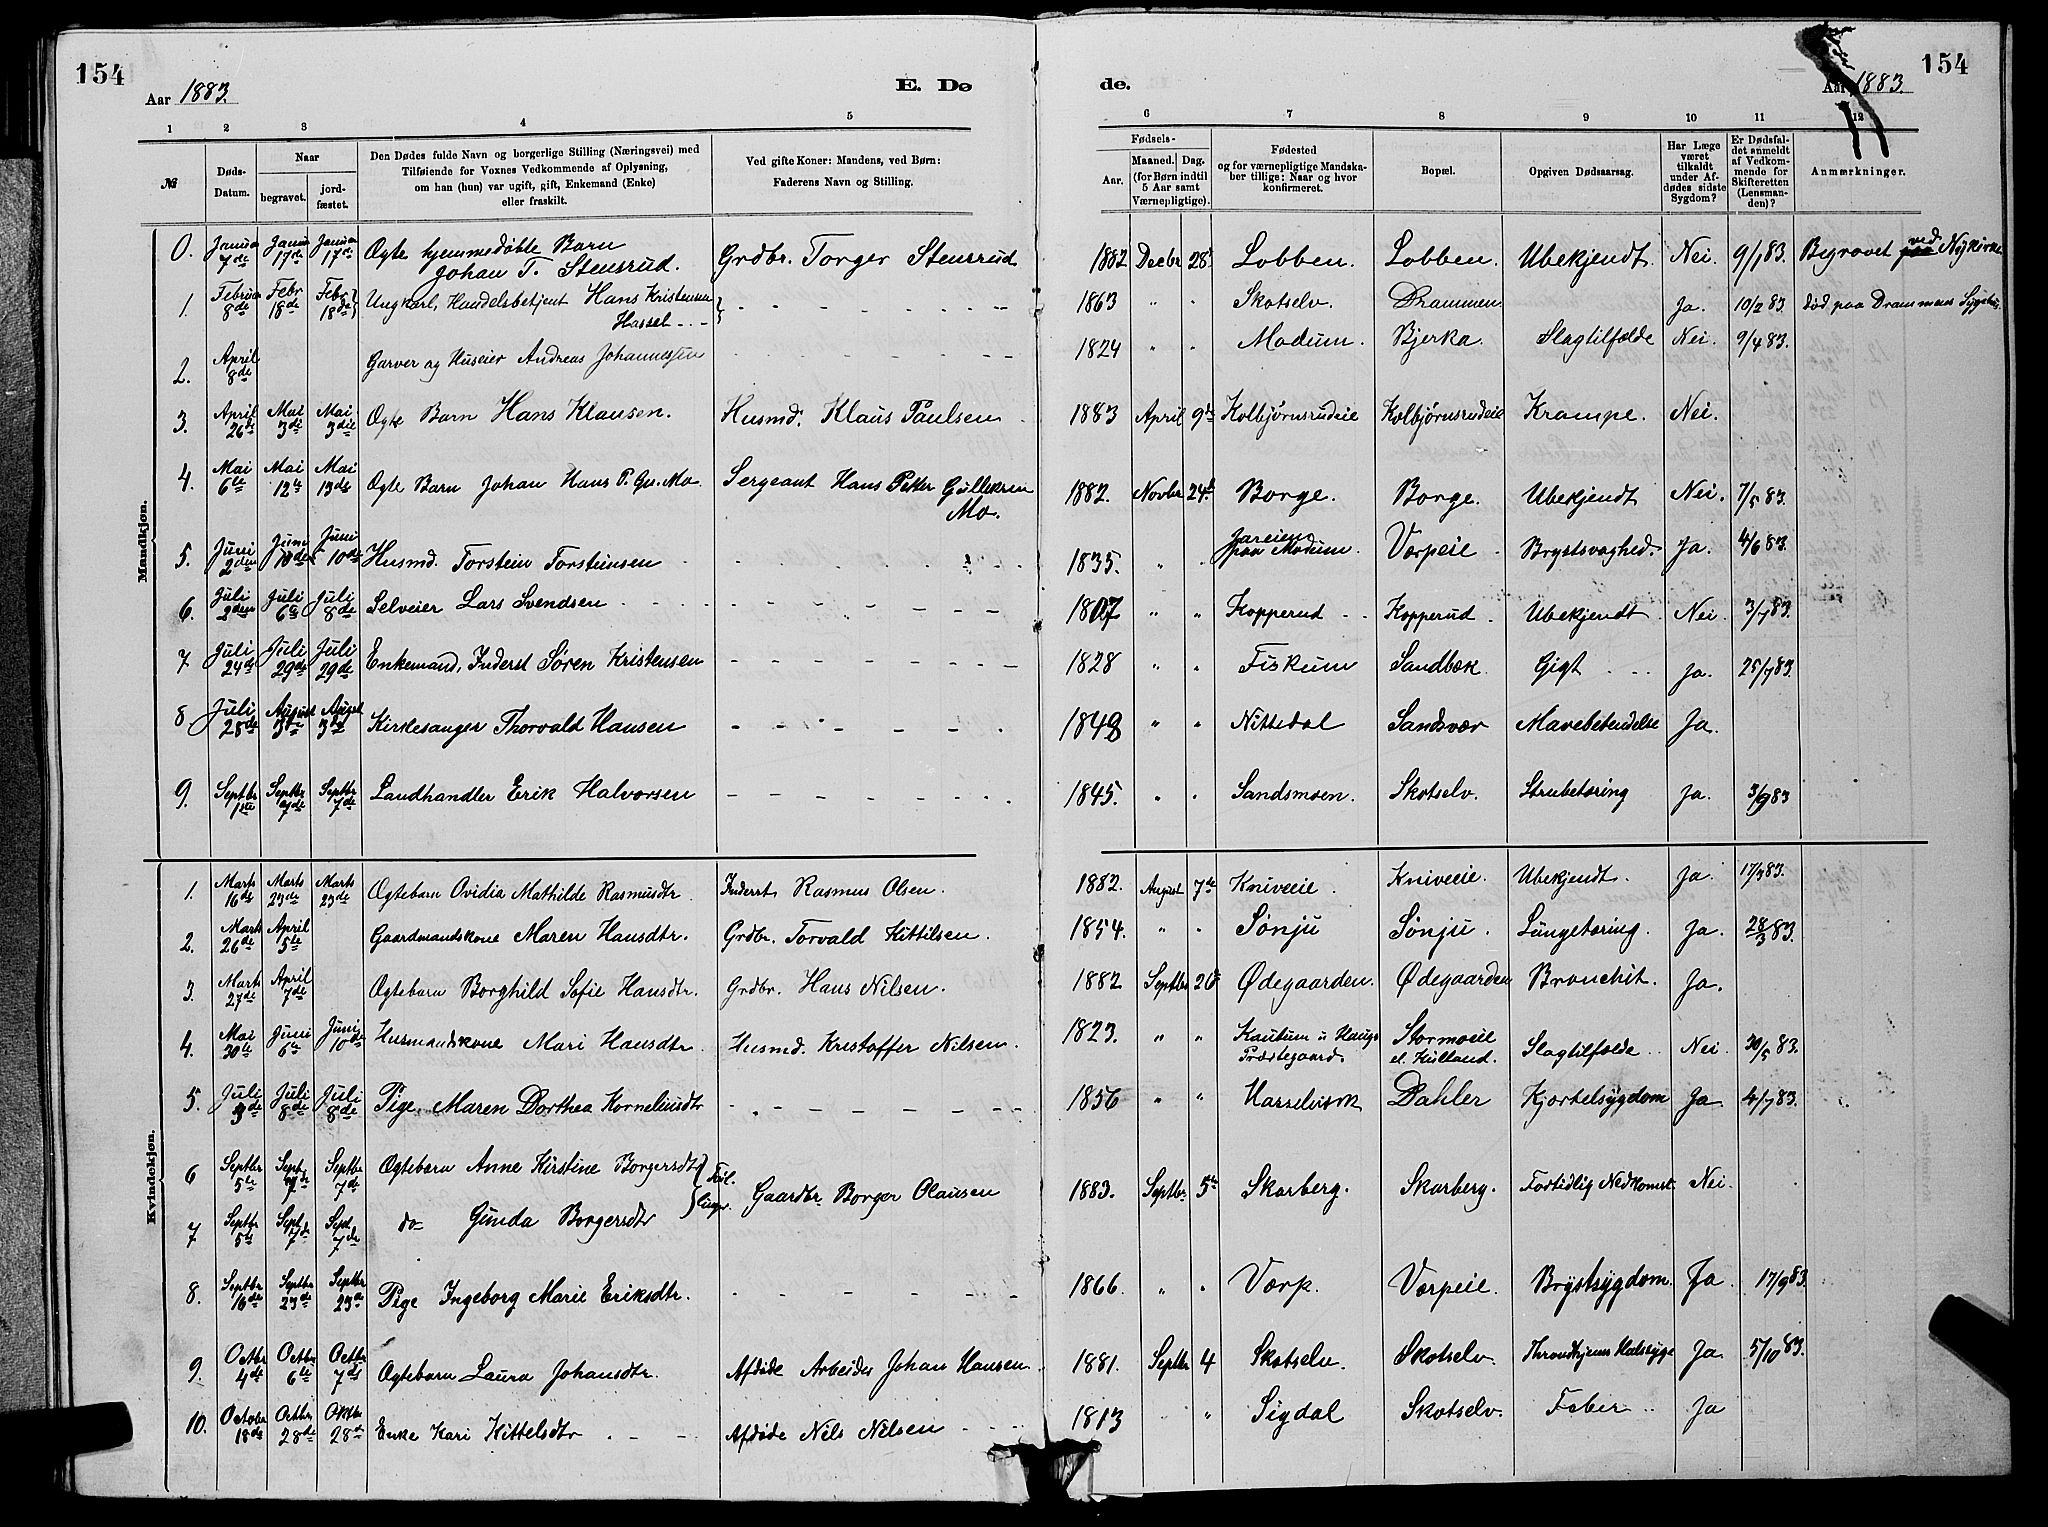 154
Aar 1883.
E. Dø
de.
Aar 1883.
154
1 2 3 4 5 6 7 8 9 10 11 12
№
Døds-Datum.
Naar
begravet.
jord-fæstet.
Den Dødes fulde Navn og borgerlige Stilling (Næringsvei) med
Tilføiende for Voxnes Vedkommende af Oplysning,
om han (hun) var ugift, gift, Enkemand (Enke)
eller fraskilt.
Ved gifte Koner: Mandens, ved Børn:
Faderens Navn og Stilling.
Fødsels-
Aar.
Maaned. Dag.
(for Børn indtil
5 Aar samt
Værnepligtige).
Fødested
og for værnepligtige Mandska-
ber tillige: Naar og hvor
konfirmeret.
Bopæl.
Opgiven Dødsaarsag.
Har Læge
været
tilkaldt
under Af-
dødes sidste
Sygdom?
Er Dødsfal-
det anmeldt
af Vedkom-
mende for
Skifteretten
(Lensman-
den)?
Anmærkninger.
Mandkjøn.
0. Januar 7de Januar 17de Januar 17de Ægte hjemmedøbte Barn Johan T. Stensrud. Grdbr. Torger Stensrud 1882 Decbr 28 Lobben. Lobben. Ubekjendt. Nei. 9/1 83. Begravet paa ved Nykirke
1. Februar 8de Febr 18de Febr 18de Ungkarl, Handelsbetjent Hans Kristensen Hassel 1863 " " Skotselv. Drammen Ja. 10/2 83. død paa Drammens Sygehus.
2. April 8de Garver og Huseier Andreas Johannessen 1824 " " Modum. Bjerka. Slagtilfælde Nei. 9/4 83.
3. April 26de Mai 3die Mai 3die Ægte Barn Hans Klausen. Husmd. Klaus Paulsen 1883 April 9de Kolbjørnsrudeie Kolbjørnsrudeie Krampe. Nei.
4. Mai 6te Mai 12te Mai 13de Ægte Barn Johan Hans P. Gu. Mo. Sergeant Hans Peter Gulliksen Mo. 1882. Novbr 24de Borge. Borge. Ubekjendt Nei. 7/5 83.
5. Juni 2den Juni 10de Juni 10de Husmd. Torstein Torsteinsen 1835. " " paa Modum. Værpeie Brystsvaghed. Ja. 4/6 83.
6. Juli 2den Juli 6te Juli 8de Selveier Lars Svendsen 1807 " " Kopperud Kopperud. Ubekjendt Nei. 3/7 83.
7 Juli 24de Juli 29de Juli 29de Enkemand, Inderst Søren Kristensen 1828 " " Fiskum Sandbæk. Gigt Ja. 25/7 83.
8 Juli 28de August 3die August 3die Kirkesanger Thorvald Hansen 1848 " " Nittedal Sandsvær Mavebetendelse Ja.
9. Septbr 1ste Septbr 7de Septbr 7de Landhandler Erik Halvorsen 1845. " " Sandsmoen. Skotselv. Strubetæring Ja. 3/9 83
Kvindekjøn.
1. Marts 16de Marts 23de Marts 23de Ægtebarn Ovidia Mathilde Rasmusdtr. Inderst Rasmus Olsen. 1882. August 7de Kniveeie. Kniveeie. Ubekjendt. Ja. 17/3 83.
2. Marts 26de April 5te Gaardmandskone Maren Hansdtr. Grdbr. Torvald Kittilsen. 1854. " " Sønju Sønju. Lungetæring. Ja. 28/3 83.
3. Marts 27de April 7de Ægtebarn Borghild Sofie Hansdtr. Grdbr. Hans Nilsen. 1882 Septbr 26 Ødegaarden. Ødegaarden Bronchit. Ja.
4. Mai 30te Juni 6te Juni 10de Husmandskone Mari Hansdtr. Husmd. Kristoffer Nilsen. 1823. " " Kautum u Haugs Præstegaard Stormoeie el. Kulland. Slagtilfælde Nei. 30/5 83.
5. Juli 3de Juli 8de Juli 8de Pige Maren Dorthea Korneliusdtr 1856 " " Hasselværk Dahler Kjertelsygdom Ja. 4/7 83.
6 Septbr 5te Sept 7de Septbr 7de Ægtebarn Anne Kirstine Borgersdtr Tvil- Gaardbr. Borger Olausen 1883. Septbr. 5te Skarberg. Skarberg. Fortidlig Nedkomst. Nei.
7 Septbr 5te Sept 7de Sept 7de do Gunda Borgersdtr linger.
8. Septbr 16de Septbr 23de Septbr 23de Pige Ingeborg Marie Eriksdtr. 1866. " " Værp. Værpeie. Brystsygdom. Ja. 17/9 83.
9. Octbr 4de Octbr 6te Octbr 7de Ægtebarn Laura Johansdtr. Afdøde Arbeider Johan Hansen 1881. Septbr 4 Skotselv. Skotselv. Throndhjems Halssyge Ja. 5/10 83.
10. October 18de Octbr 28de Oktbr 28de Enke Kari Kittelsdtr Afdøde Nils Nilsen 1813 " Sigdal Skotselv. Feber Ja